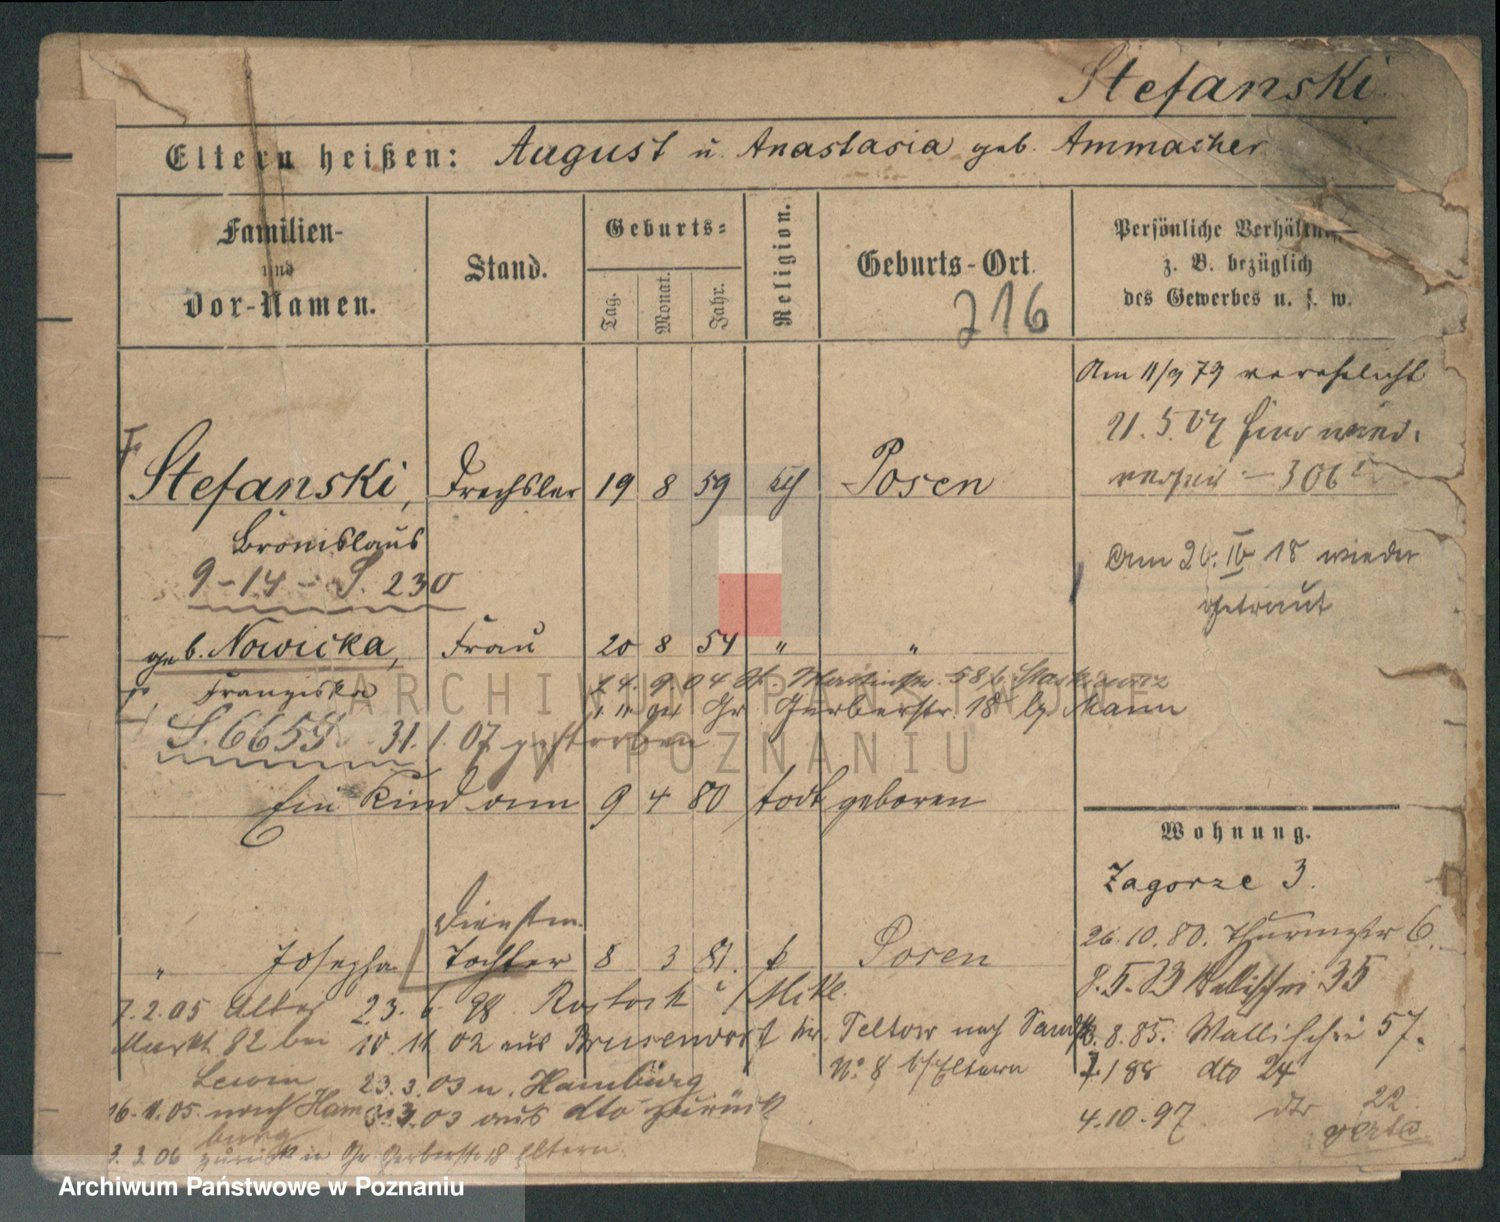 Stefanski.
Eltern heißen: August u. Anastasia geb. Ammacher
Familien- und Vor-Namen.
Stand.
Geburts-
Tag.
Monat.
Jahr.
Religion.
Geburts-Ort.
216
Persönliche Verhältn
z. B. bezüglich
des Gewerbes u. s. w.
Am 11/9 79 verehelicht
21. 5. 07 hier wied.
306
Stefanski, Drechsler 19 8 59 kth Posen
Bronislaus
9 - 14 - S. 230
Am 26. IV 18 wieder
getraut
geb. Nowicka, Frau 20 8 54 " "
Franziska
S. 6659 31. 1. 07 gestorben
Gr. Gerberstr. 18 b/ Mann
Ein Kind am 9 4 80 todt geboren
Wohnung.
Zagorze 3.
26. 10. 80. 6.
8. 5. 83 Wallischei 35
8. 85. Wallischei 57.
1 88 dto 24
4. 10. 97. dto 22
verte
Dienstm.
" Josepha Tochter 8 3 81. k Posen
7. 2. 05 Alter 23. 6. 98. Rostock i/Mekl.
Markt 82 bei 10. 11 02 aus Brusendorf Kr. Teltow nach
No. 8 b/Eltern
Lewin 23. 3. 03 n. Hamburg
16. 11. 05. nach Hamburg 03 aus dto zurück
3. 3. 06 zurück in Gr. Gerberstr. 18 Eltern
ARCHIWUM PAŃSTWOWE
W POZNANIU
Archiwum Państwowe w Poznaniu